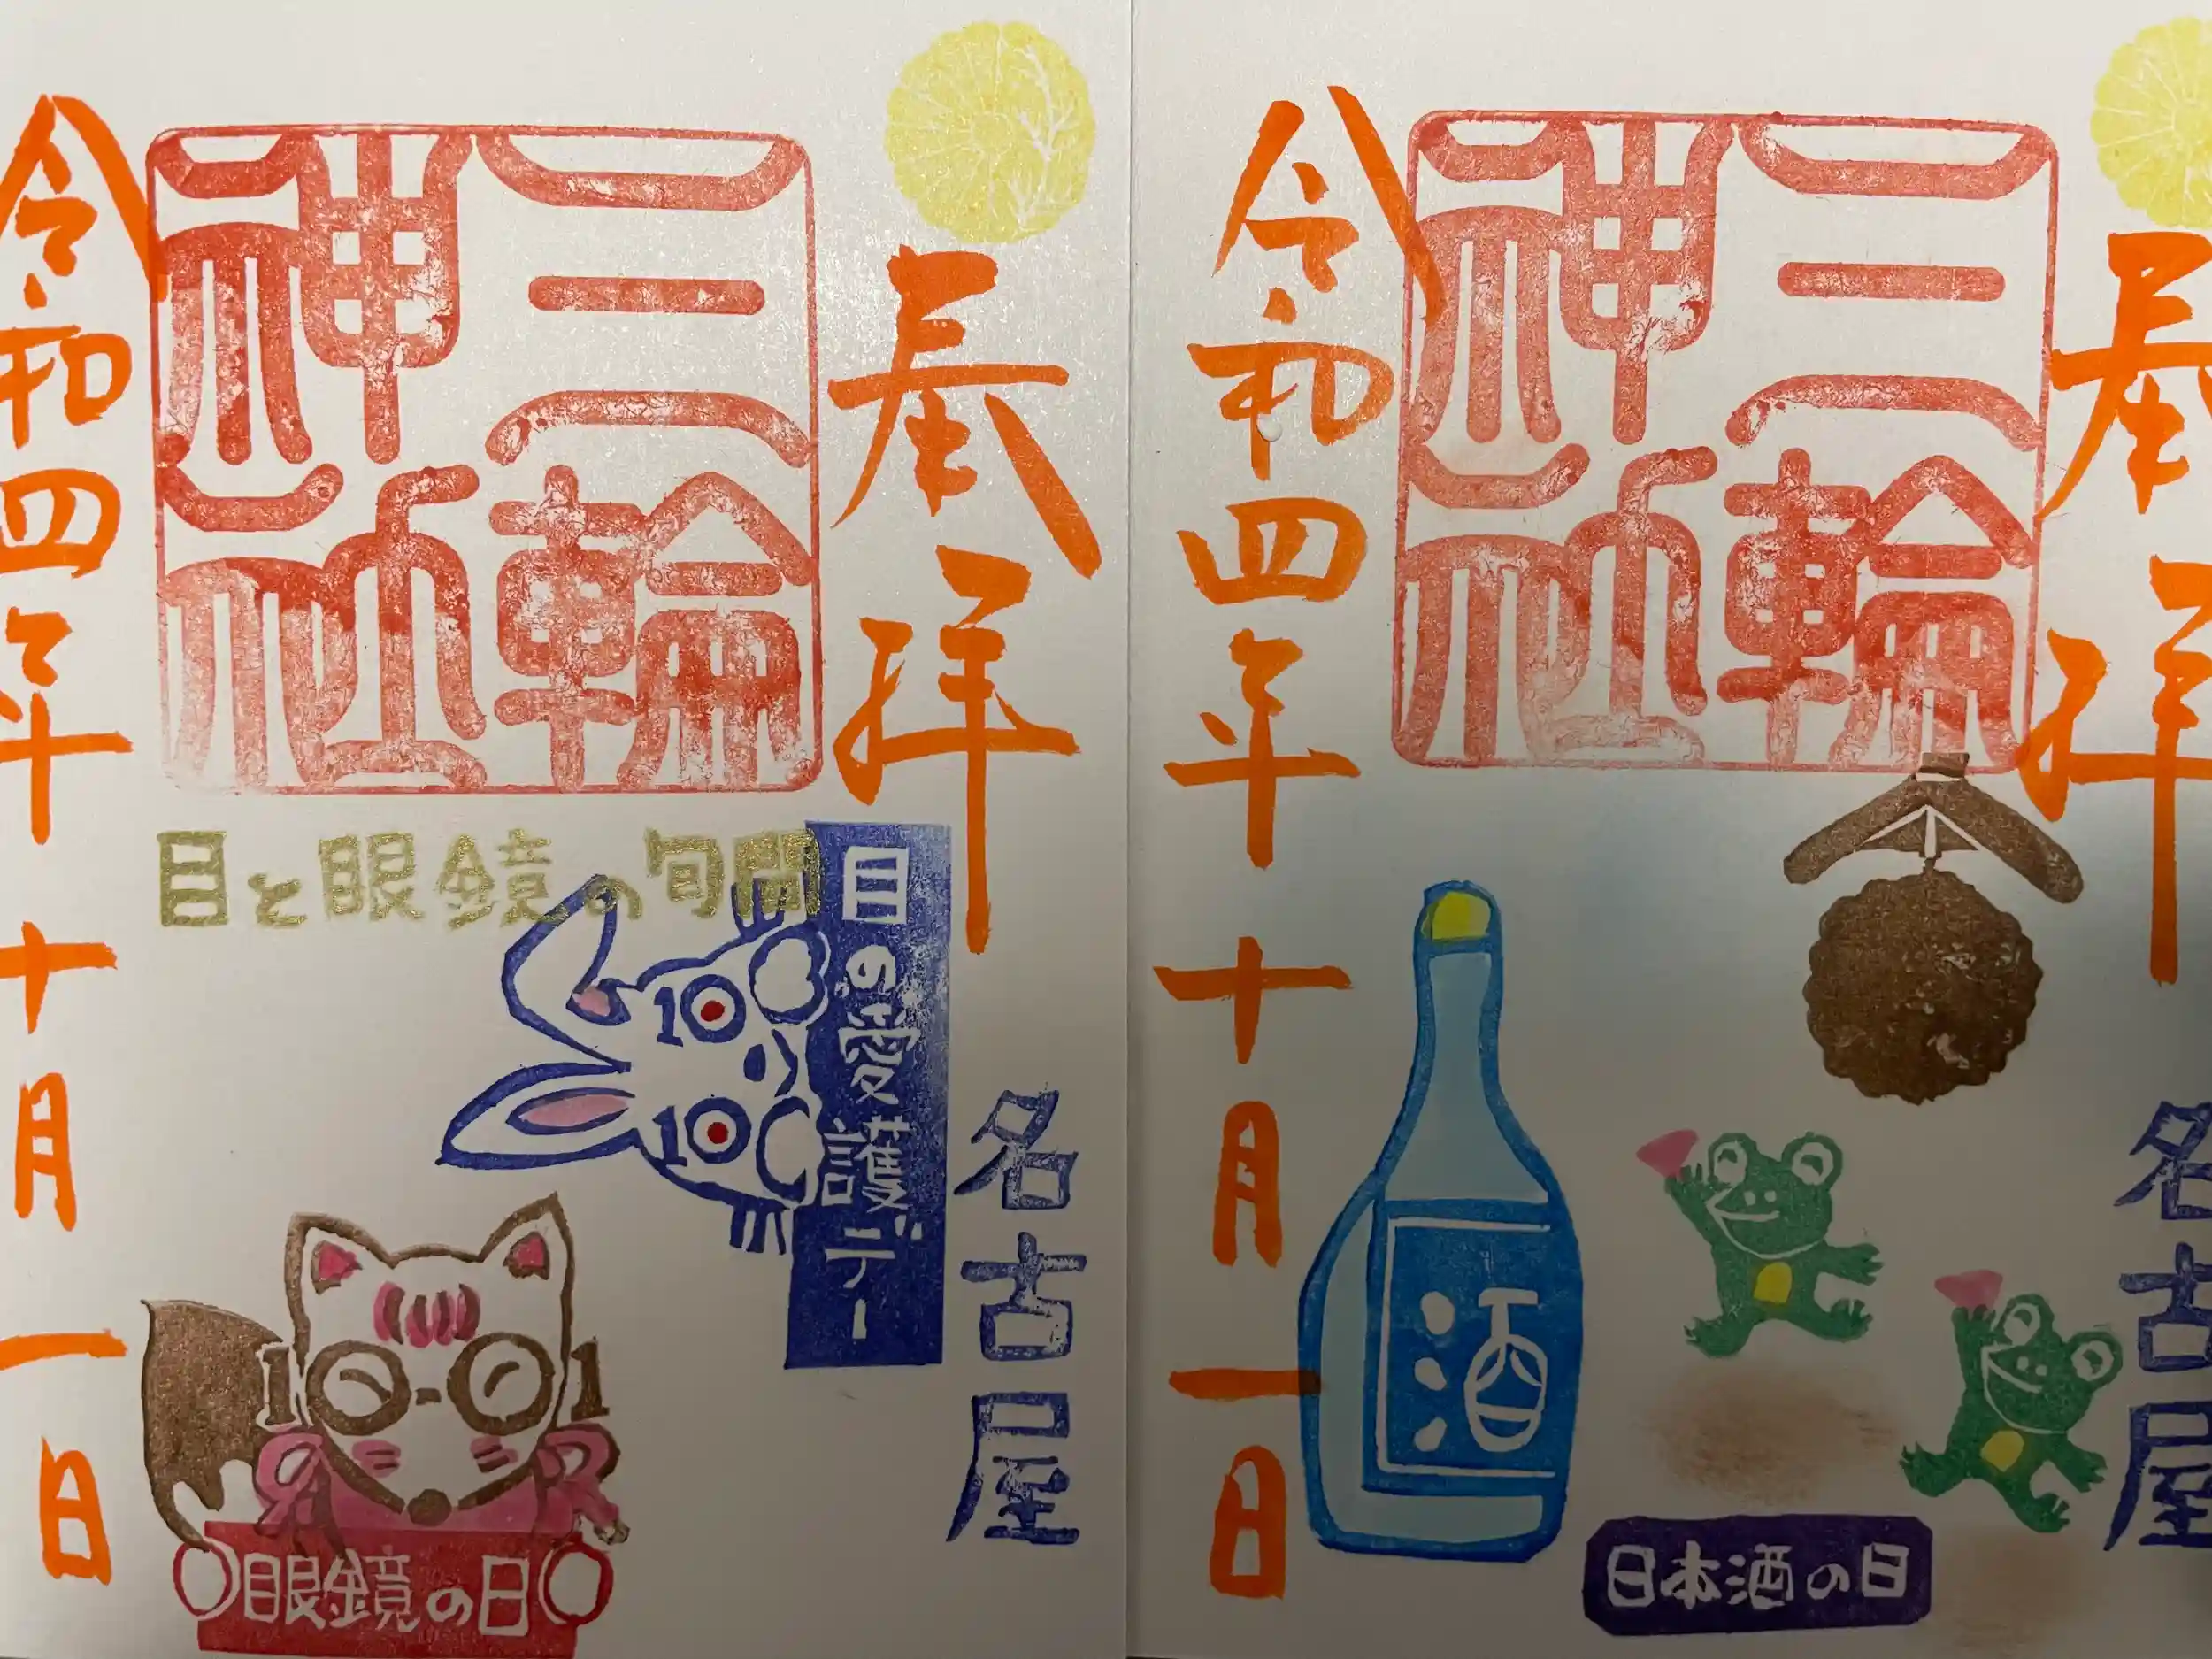 奉拝
三輪
神社
令和四年十月一日
目と眼鏡の旬間
目の愛護デー
名古屋
10
10
10-01
眼鏡の日
奉拝
三輪
神社
令和四年十月一日
酒
名古屋
日本酒の日